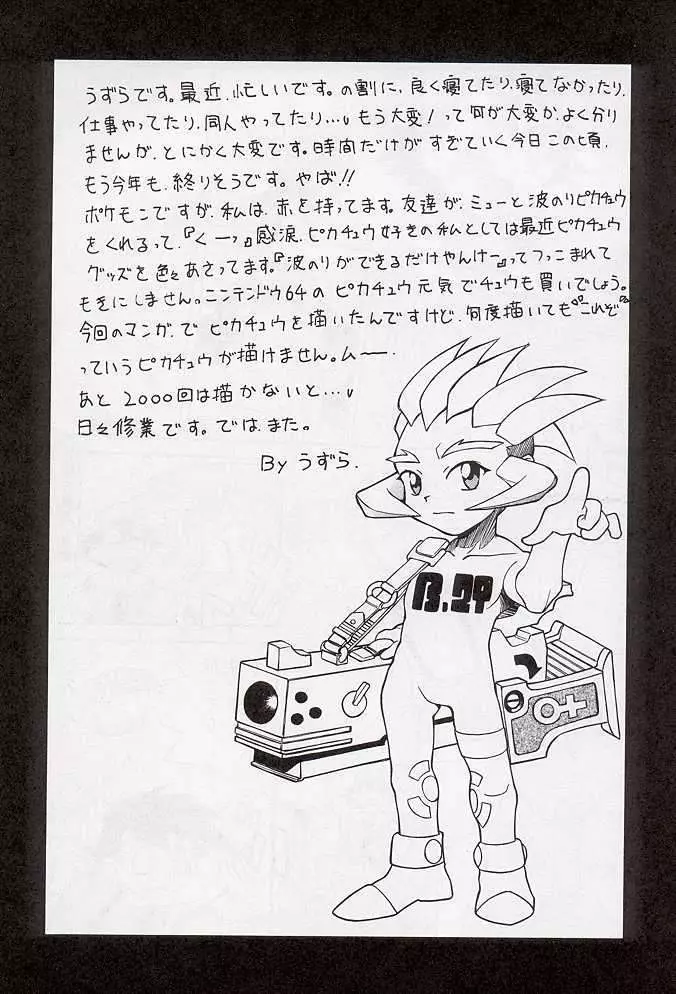 うずらです。最近、忙しいです。の割に、良く寝てたり、寝てなかったり、
仕事やってたり、同人やってたり…。もう大変！って何が大変か、よく分り
ませんが、とにかく大変です。時間だけが すぎていく今日この頃、
もう今年も、終りそうです。やば!!
ポケモンですが、私は、赤を持ってます。友達が、ミューと波のりピカチュウ
をくれるって、『くーっ』感涙、ピカチュウ好きの私としては最近ピカチュウ
グッズを色々あさってます。『波のりができるだけやんけー』ってつっこまれて
もきにしません。ニンテンドウ64の ピカチュウ元気でチュウも買いでしょう。
今回のマンガで ピカチュウを描いたんですけど、何度描いても『これぞ』
っていうピカチュウが描けません。ムー。
あと 2000回は描かないと…。
日々修業です。では、また。
By うずら.
B.29